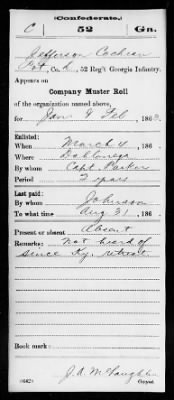 (Confederate.)
C 52 Ga.
Jefferson Cochran
Pvt, Co. , 52 Reg't Georgia Infantry.
Appears on
Company Muster Roll
of the organization named above,
for Jan & Feb, 1863.
Enlisted:
When March 4, 186
Where Dahlonega
By whom Capt. Parker
Period 3 years
Last paid:
By whom Johnson
To what time Aug 31, 186
Present or absent Absent
Remarks: Not heard of
since Ky. retreat
Book mark:
(642) J. A. McLaughlin
Copyist.